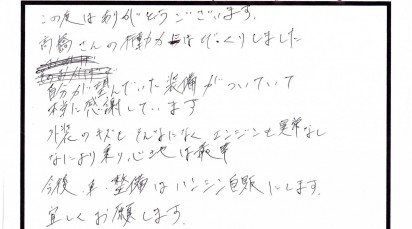 この度はありがとうございます。
高橋さんの行動力にはびっくりしました
自分が望んでいた装備がついていて
本当に感謝しています
外装のキズもそんなになくエンジンも異常なし
なにより乗り心地は最高
今後車整備はハンシン自販にします。
宜しくお願します。